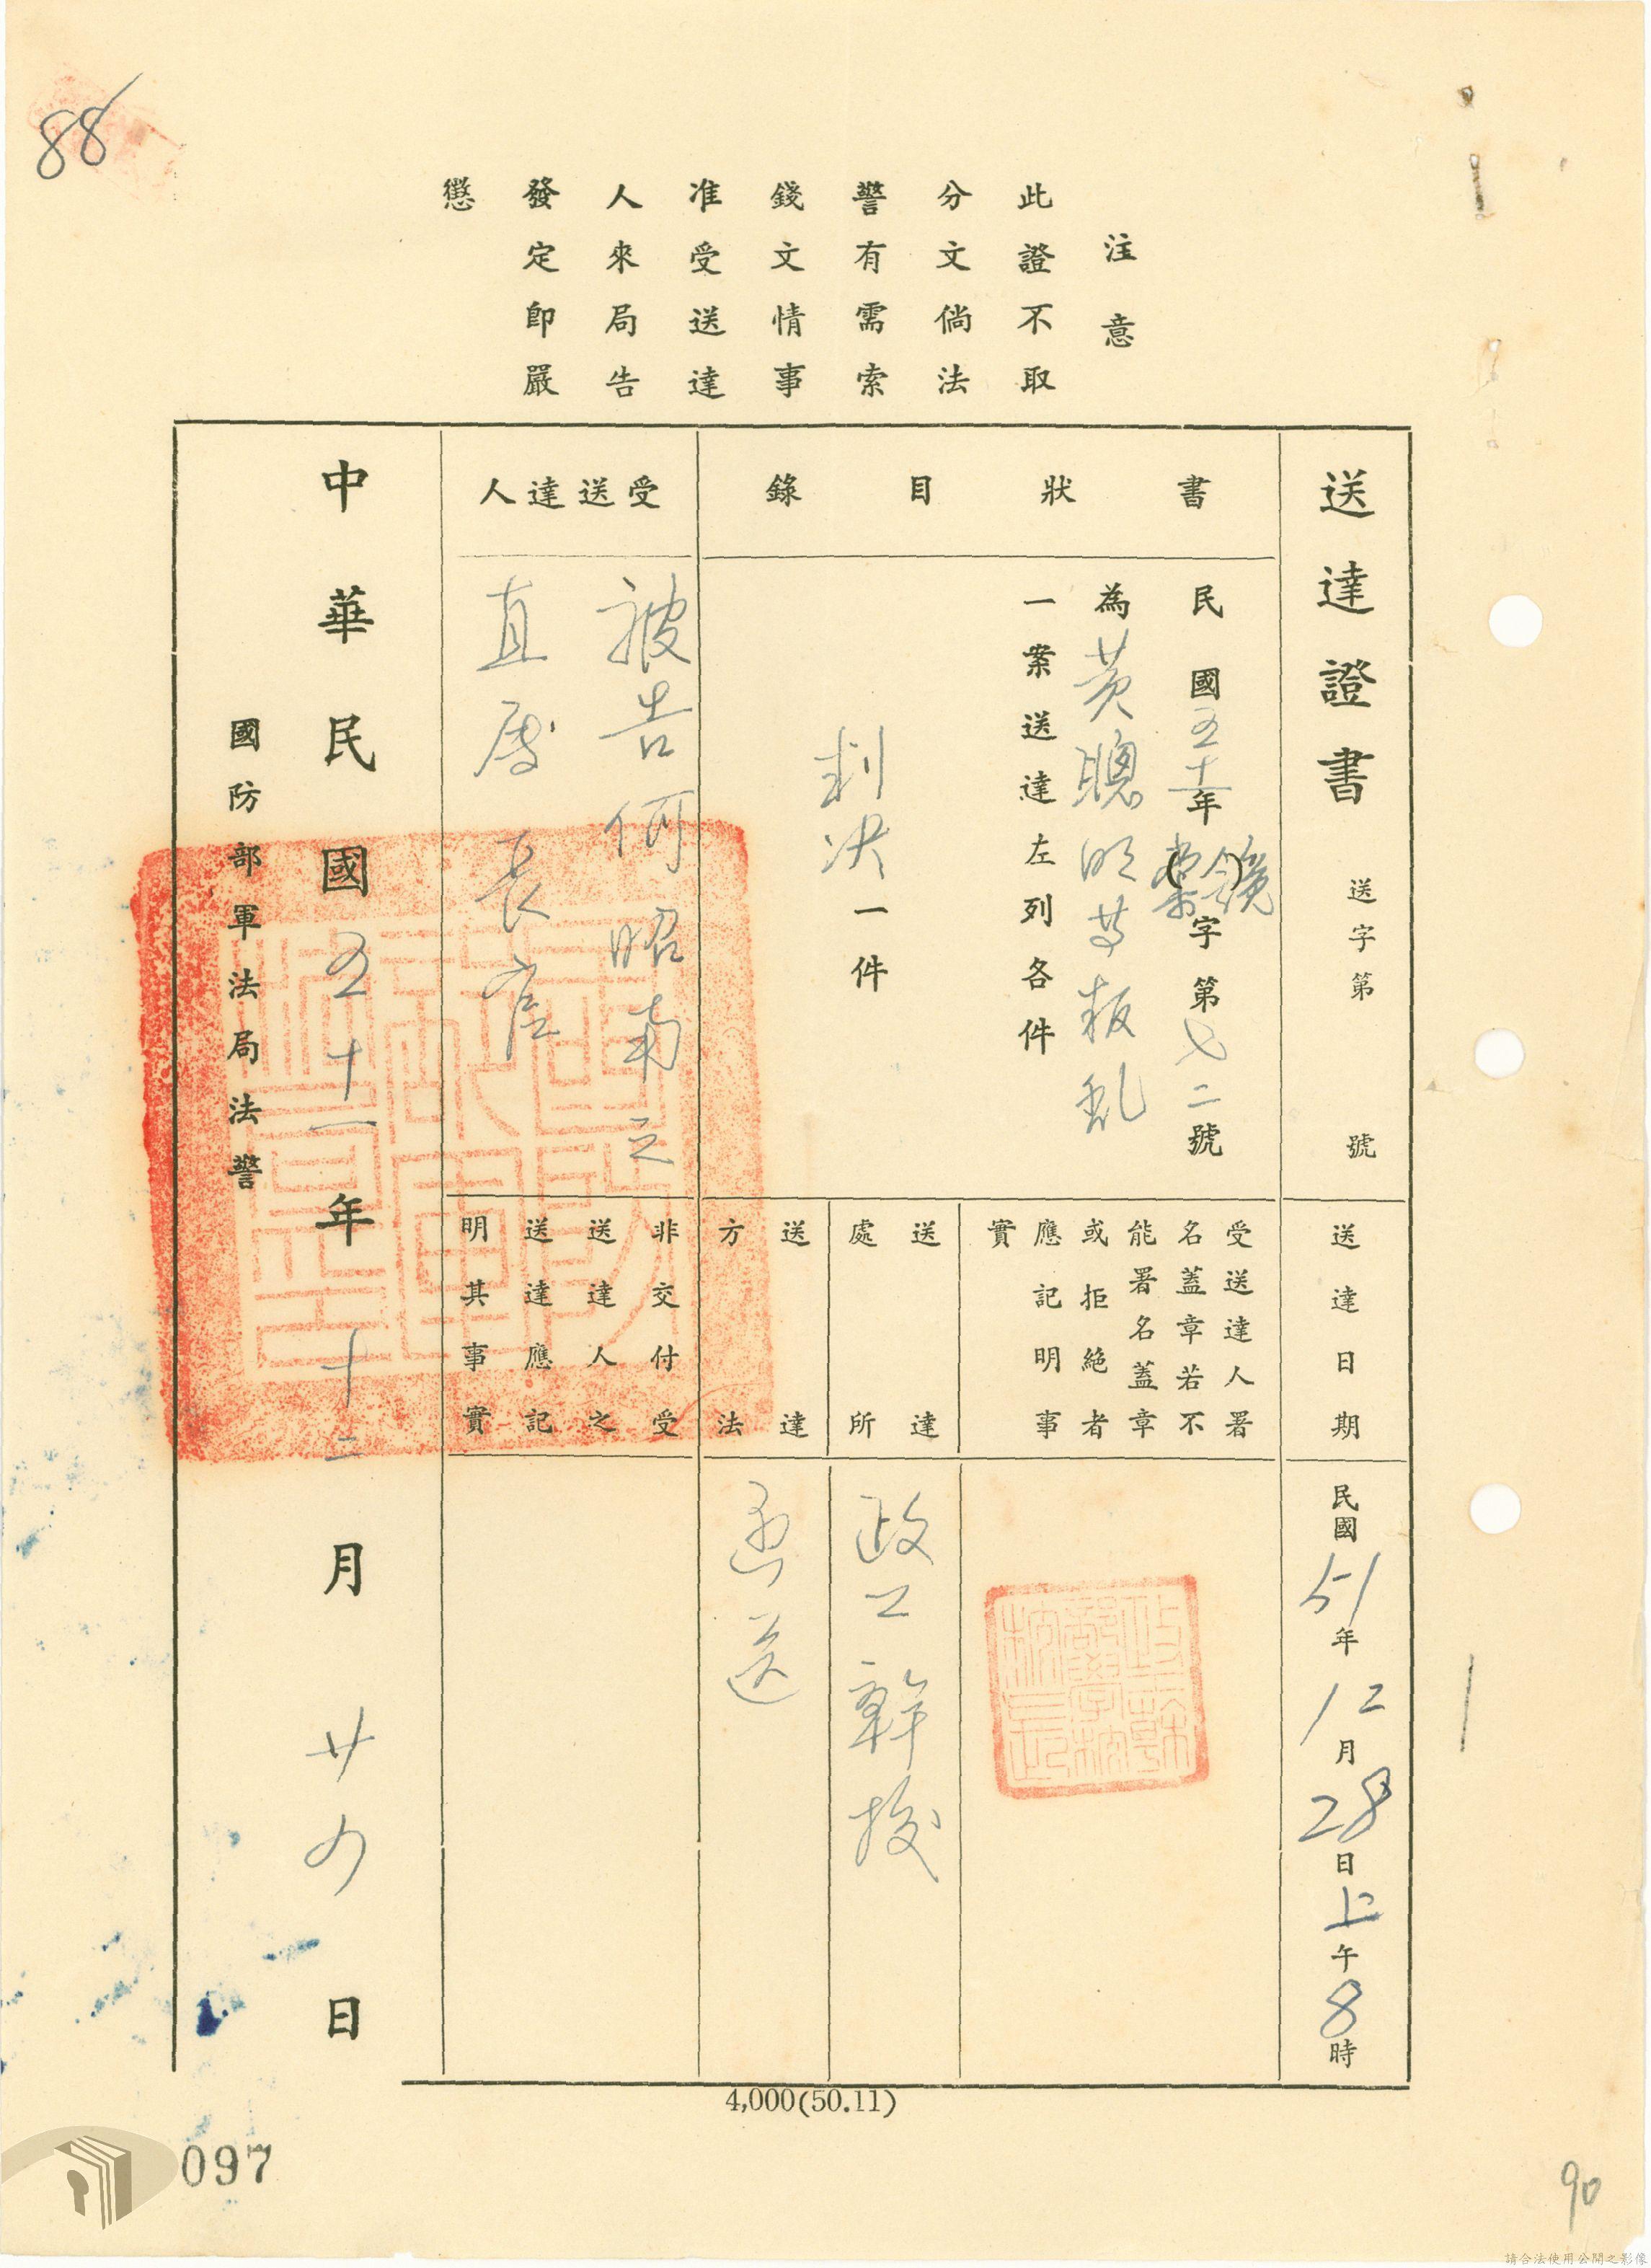 88
注意
此證不取
分文倘法
警有需索
錢文情事
准受送達
人來局告
發定即嚴
懲
送達證書 送字第 號
送達日期
民國51年12月28日上午8時
書狀目錄
民國五十一年()字第七二號
為黃聰明等叛亂
一案送達左列各件
判決一件
受送達人署
名蓋章若不
能署名蓋章
或拒絕者
應記明事
實
送達
處所
政工幹校
送達
方法
函送
受送達人
被告何昭南之
直屬長官
非交付受
送達人之
送達應記
明其事實
中華民國五十一年十二月廿六日
國防部軍法局法警
4,000(50.11)
097
90
請合法使用公開之影像